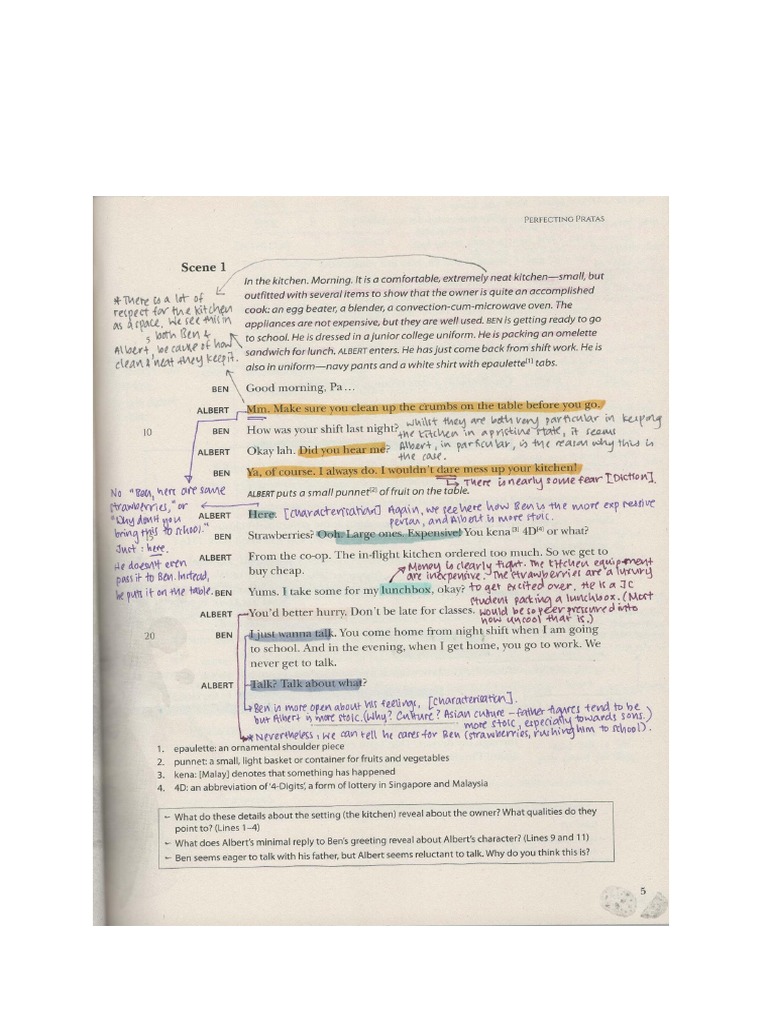 PERFECTING PRATAS
Scene 1
In the kitchen. Morning. It is a comfortable, extremely neat kitchen—small, but
outfitted with several items to show that the owner is quite an accomplished
cook: an egg beater, a blender, a convection-cum-microwave oven. The
appliances are not expensive, but they are well used. BEN is getting ready to go
to school. He is dressed in a junior college uniform. He is packing an omelette
sandwich for lunch. ALBERT enters. He has just come back from shift work. He is
also in uniform—navy pants and a white shirt with epaulette[1] tabs.
* There is a lot of
respect for the kitchen
as a space. We see this in
both Ben &
Albert, because of how
clean & neat they keep it.
BEN Good morning, Pa…
ALBERT Mm. Make sure you clean up the crumbs on the table before you go.
10 BEN How was your shift last night?
whilst they are both very particular in keeping
the kitchen in a pristine state, it seems
Albert, in particular, is the reason why this is
the case.
ALBERT Okay lah. Did you hear me?
BEN Ya, of course. I always do. I wouldn't dare mess up your kitchen!
There is nearly some fear [Diction].
ALBERT puts a small punnet[2] of fruit on the table.
No "Ben, here are some
strawberries," or
"Why don't you
bring this to school."
Just: here.
He doesn't even
pass it to Ben. Instead,
he puts it on the table.
ALBERT Here.
[characterisation] Again, we see here how Ben is the more expressive
person, and Albert is more stoic.
BEN Strawberries? Ooh. Large ones. Expensive! You kena[3] 4D[4] or what?
ALBERT From the co-op. The in-flight kitchen ordered too much. So we get to
buy cheap.
Money is clearly tight. The kitchen equipment
are inexpensive. The strawberries are a luxury
to get excited over. He is a JC
student packing a lunchbox. (Most
would be so peer pressured into
how uncool that is.)
BEN Yums. I take some for my lunchbox, okay?
ALBERT You'd better hurry. Don't be late for classes.
20 BEN I just wanna talk. You come home from night shift when I am going
to school. And in the evening, when I get home, you go to work. We
never get to talk.
ALBERT Talk? Talk about what?
Ben is more open about his feelings, [characterisation].
but Albert is more stoic. (Why? Culture? Asian culture – father figures tend to be
more stoic, especially towards sons.)
* Nevertheless, we can tell he cares for Ben (strawberries, rushing him to school).
1. epaulette: an ornamental shoulder piece
2. punnet: a small, light basket or container for fruits and vegetables
3. kena: [Malay] denotes that something has happened
4. 4D: an abbreviation of '4-Digits', a form of lottery in Singapore and Malaysia
– What do these details about the setting (the kitchen) reveal about the owner? What qualities do they
point to? (Lines 1–4)
– What does Albert's minimal reply to Ben's greeting reveal about Albert's character? (Lines 9 and 11)
– Ben seems eager to talk with his father, but Albert seems reluctant to talk. Why do you think this is?
5